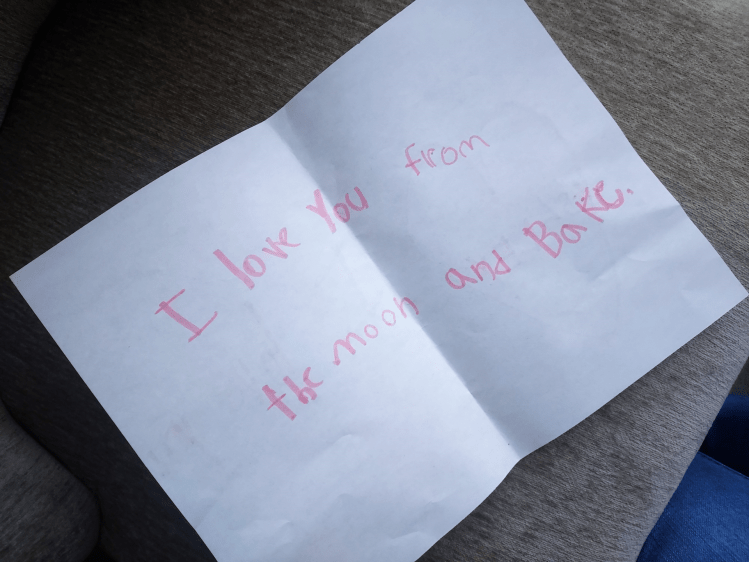 I love You from
the moon and Bake.